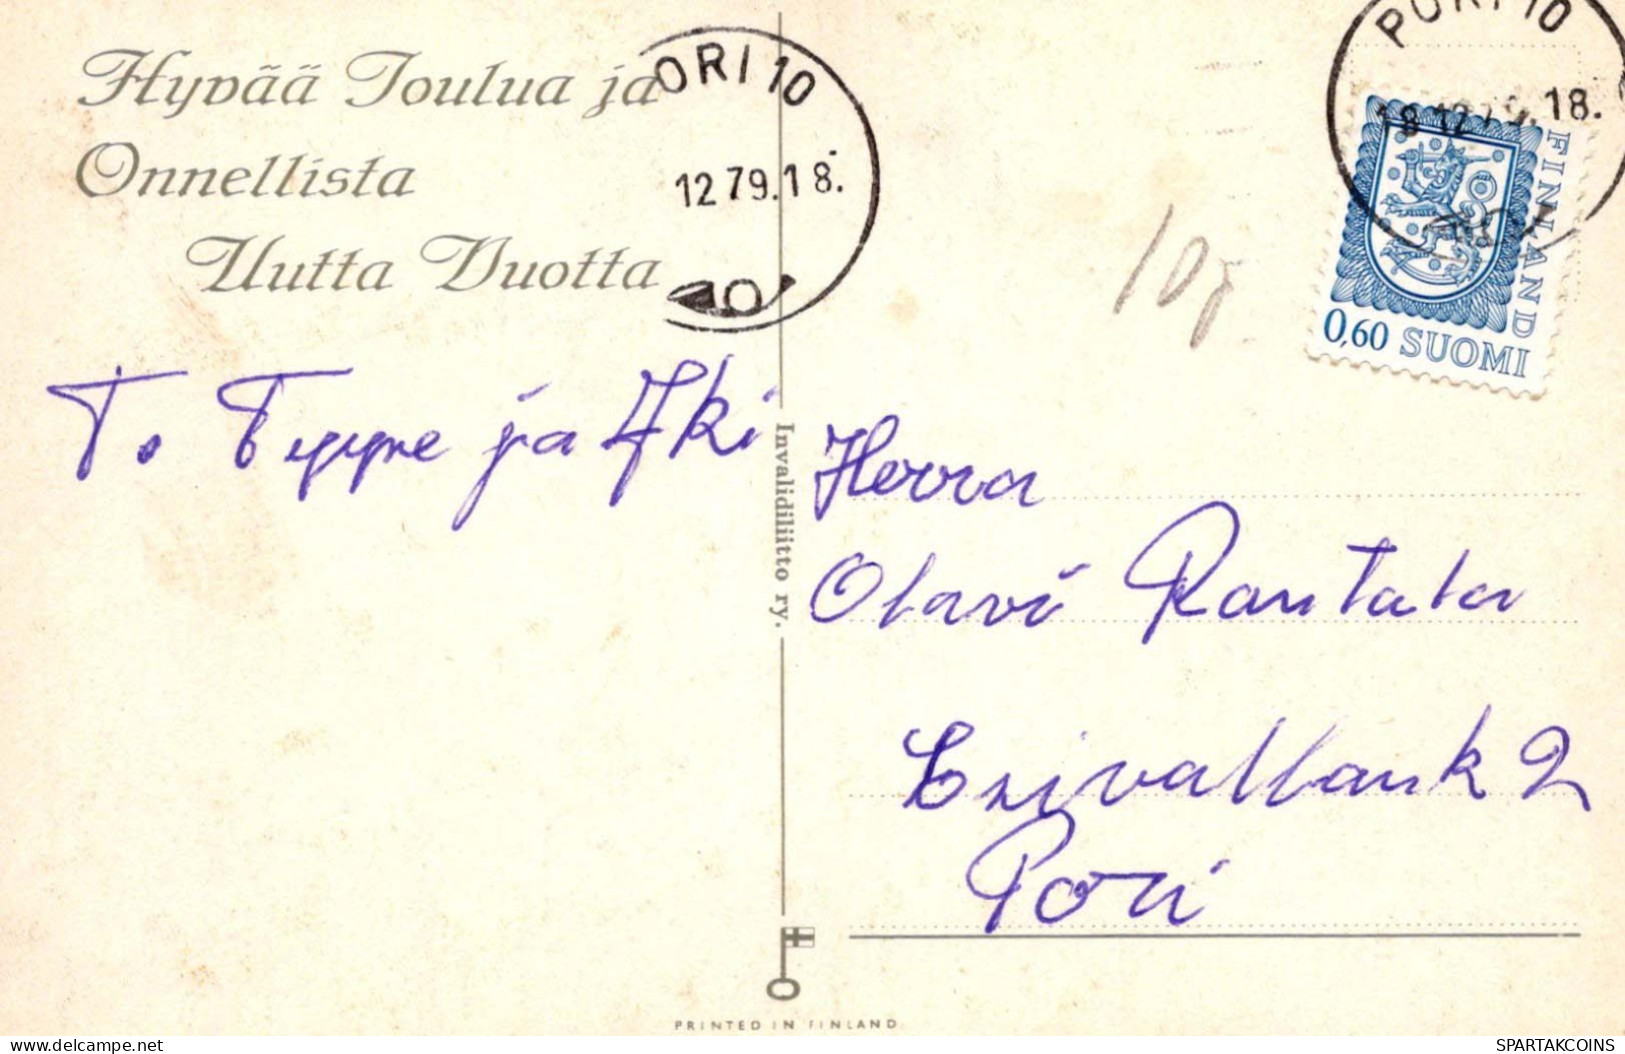 Hyvää Joulua ja
Onnellista
Uutta Vuotta
ORI 10
12 79.18.
PORI 10
18 12 79.18.
FINLAND
0,60 SUOMI
T. Teppe ja Aki
Invalidiliitto ry.
Herra
Olavi Rantala
Pori
PRINTED IN FINLAND
SPARTAKCOINS
https://www.delcampe.net